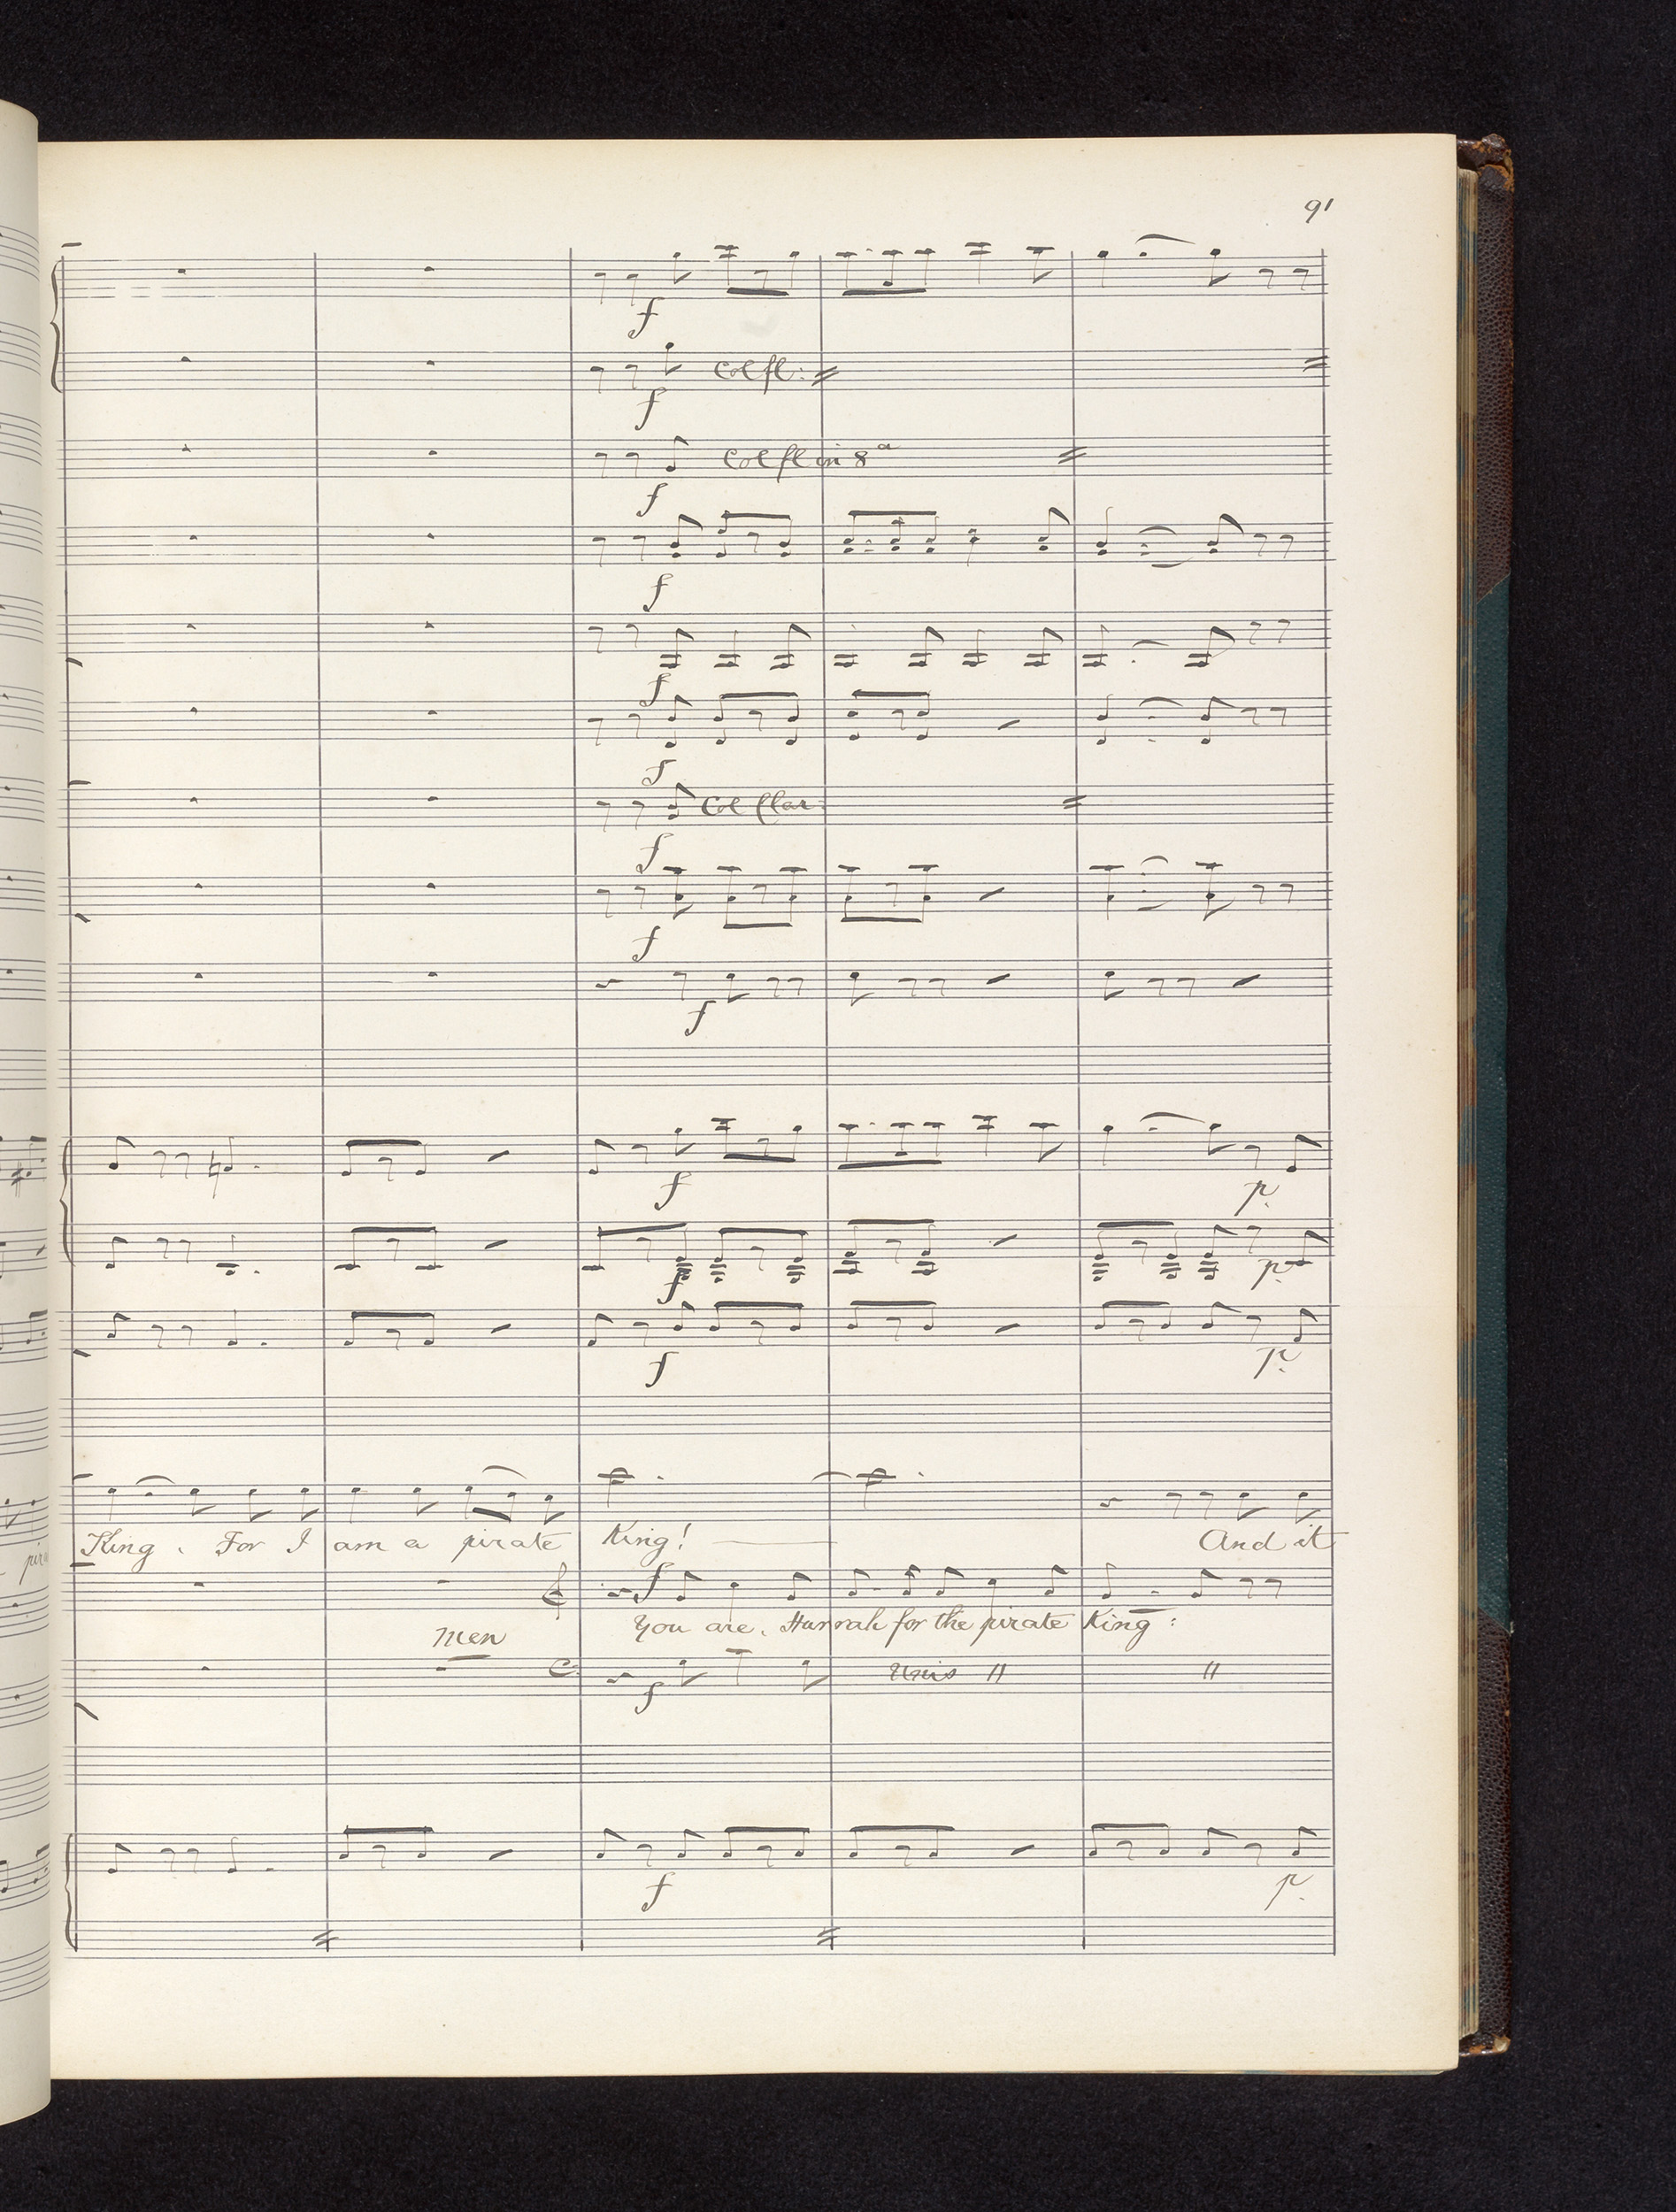 91
f
f
Col fl:
f
Col fl in 8a
f
f
f
f
Col Clar:
f
f
f
p
f
p
f
p
King. For I am a pirate King! And it
f
You are. Hurrah for the pirate King:
Men
f
Unis "
"
f
p